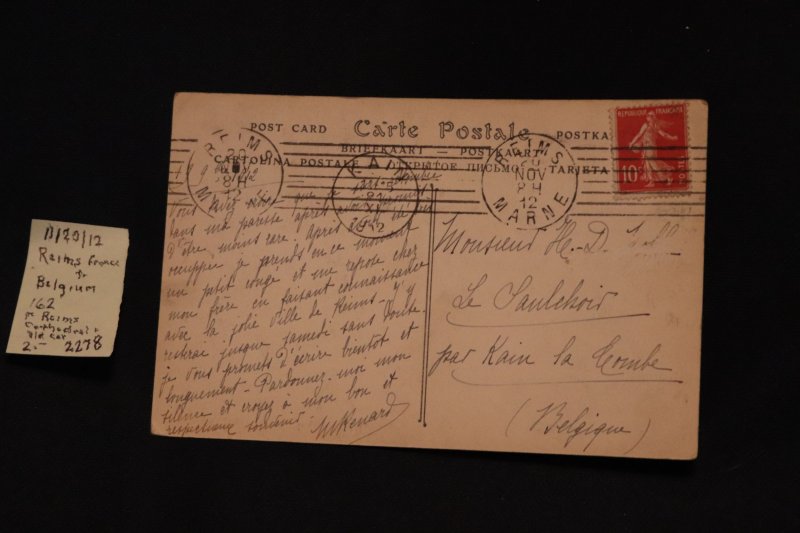 11/20/12
Reims France
to
Belgium
162
Reims
Cathedral
old car
2.- 2278
POST CARD Carte Postale POSTKA
BRIEFKAART — POSTKAART
CARTOLINA POSTALE ОТКРЫТОЕ ПИСЬМО TARJETA
REIMS
20
8H
12
MARNE
KAIN
1912
REIMS
20
NOV
8H
12
MARNE
REPUBLIQUE FRANÇAISE
10c
POSTES
Vous avez
dans ma après avoir promis
d'être moins rare. Après
occupée je prends en ce moment
un petit congé et me repose chez
mon frère en faisant connaissance
avec la jolie ville de Reims - J'y
resterai jusque samedi sans doute.
je vous promets d'écrire bientôt et
longuement - Pardonnez-moi mon
silence et croyez à mon bon et
respectueux souvenir.
Renard
Monsieur H.-D.
Le Saulchoir
par Kain la Tombe
(Belgique)